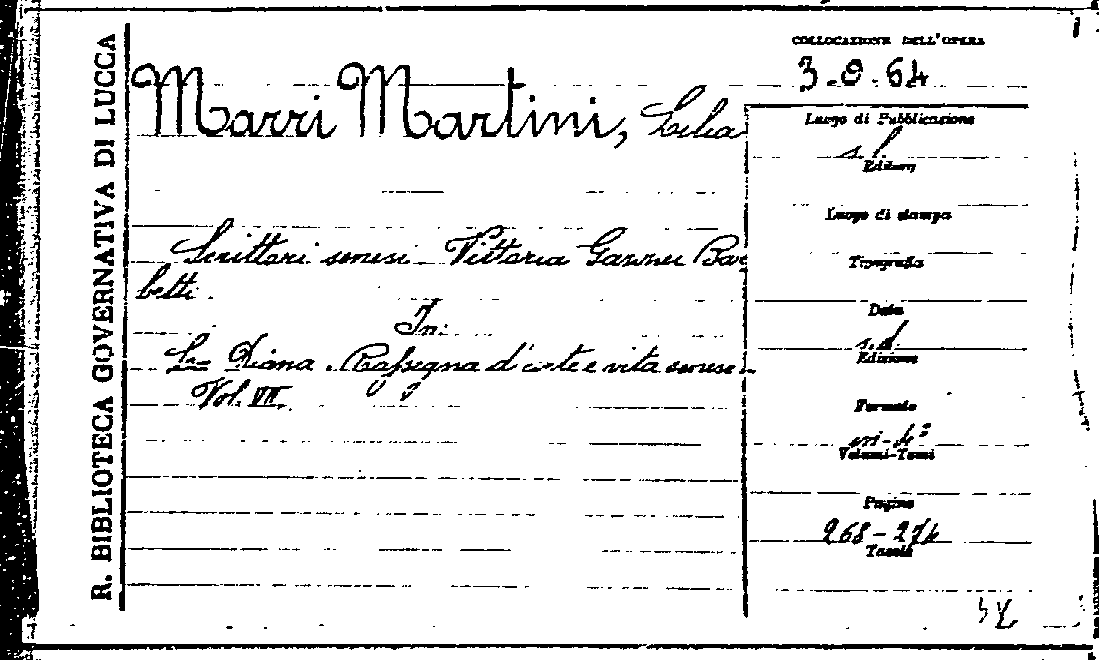 R. BIBLIOTECA GOVERNATIVA DI LUCCA
Marri Martini, Lilia
Scrittori senesi - Vittoria Gazzei Bar
betti.
In:
La Diana. Rassegna d'arte e vita senese -
Vol. VII.
COLLOCAZIONE DELL'OPERA
3.9.64
Luogo di Pubblicazione
s. l.
Editore
Luogo di stampa
Tipografia
Data
s. d.
Edizione
Formato
in-4°
Volumi-Tomi
Pagine
268-274
Tavole